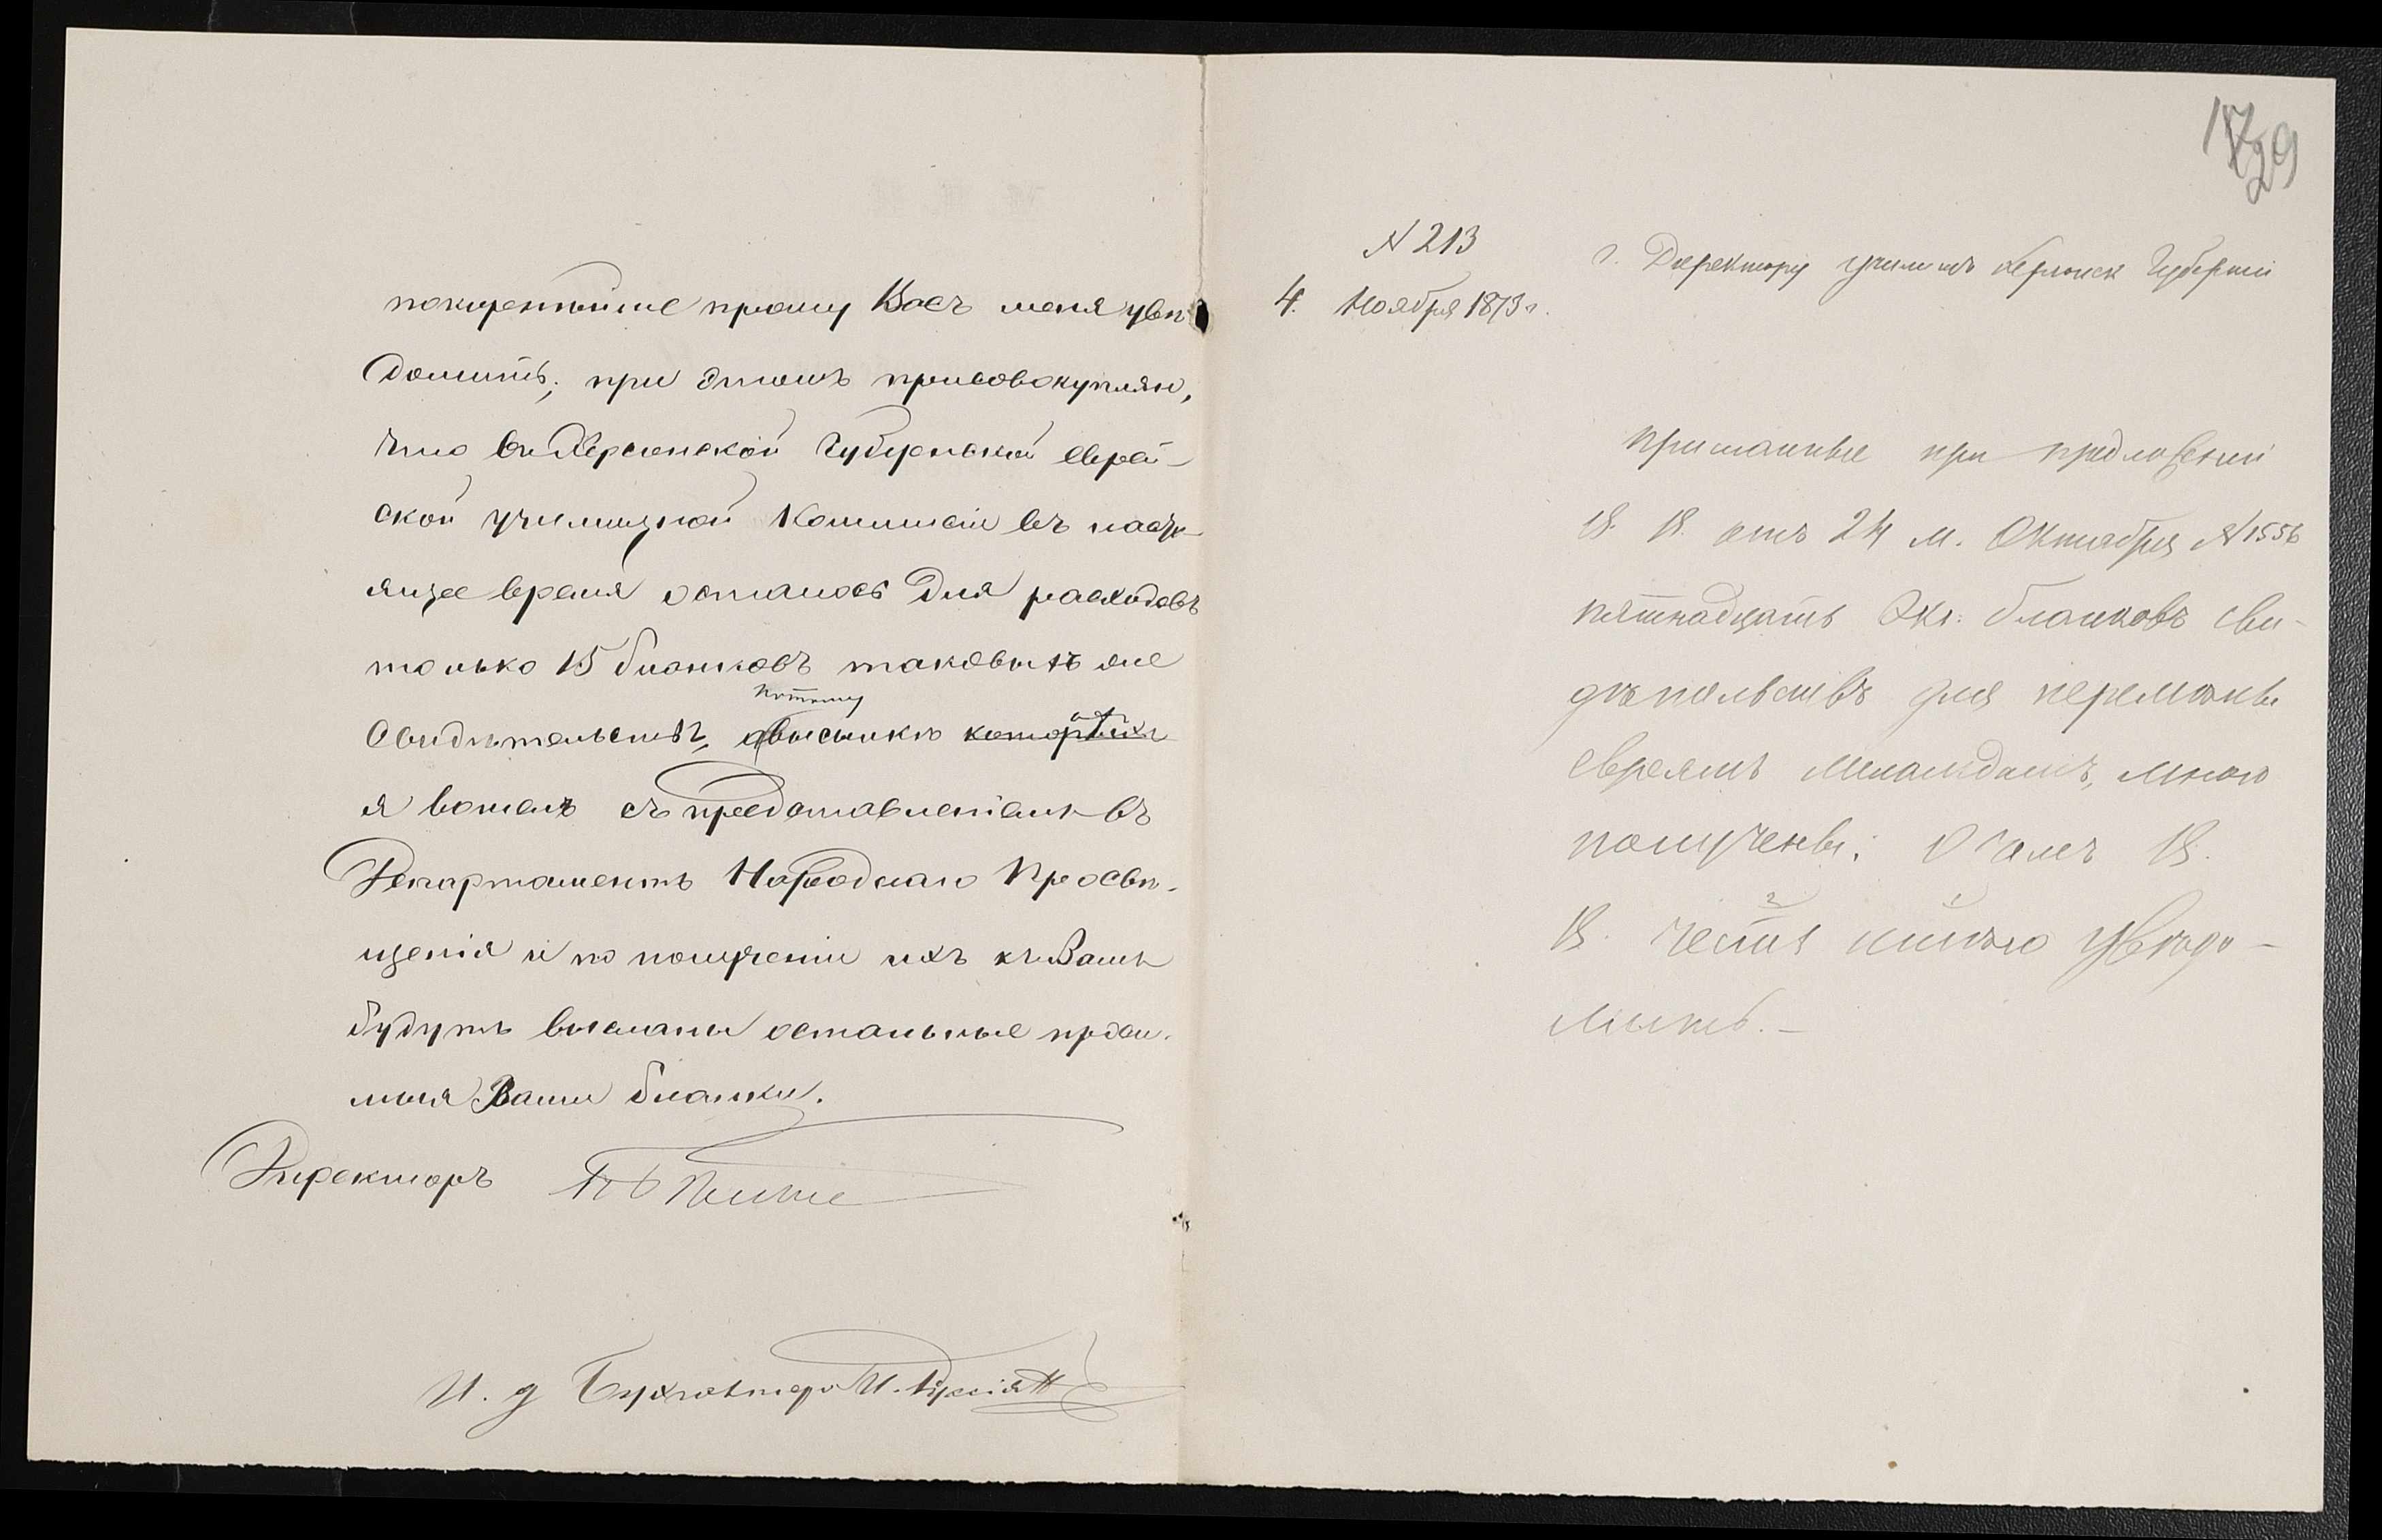 покорнѣйше прошу Васъ меня увѣ
домить; при этомъ присовокупляю,
что въ Херсонской Губернской еврей-
ской училищной Коммисіи въ насто-
ящее время осталось для расходовъ
только 15 бланковъ таковыхъ же
потому
свидѣтельствъ, о высылкѣ
я вошелъ съ представленіемъ въ
Департаментъ Народнаго Просвѣ-
щенія и по полученіи ихъ къ Вамъ
будутъ высланы остальные проси-
мыя Вами бланки.
Директоръ
И. д Бухгалтера И.
29
N 213
4. Ноября 1873 г.
г. Директору училищъ Херсонск Губерніи
Присланные при предложеніи
В. В. отъ 24 м. Октября N 1556
пятнадцать Экз: бланковъ сви-
дѣтельствъ для перемѣны
евреямъ меламдамъ, мною
получены; о чемъ В.
В. честь имѣю увѣдо-
мить.-